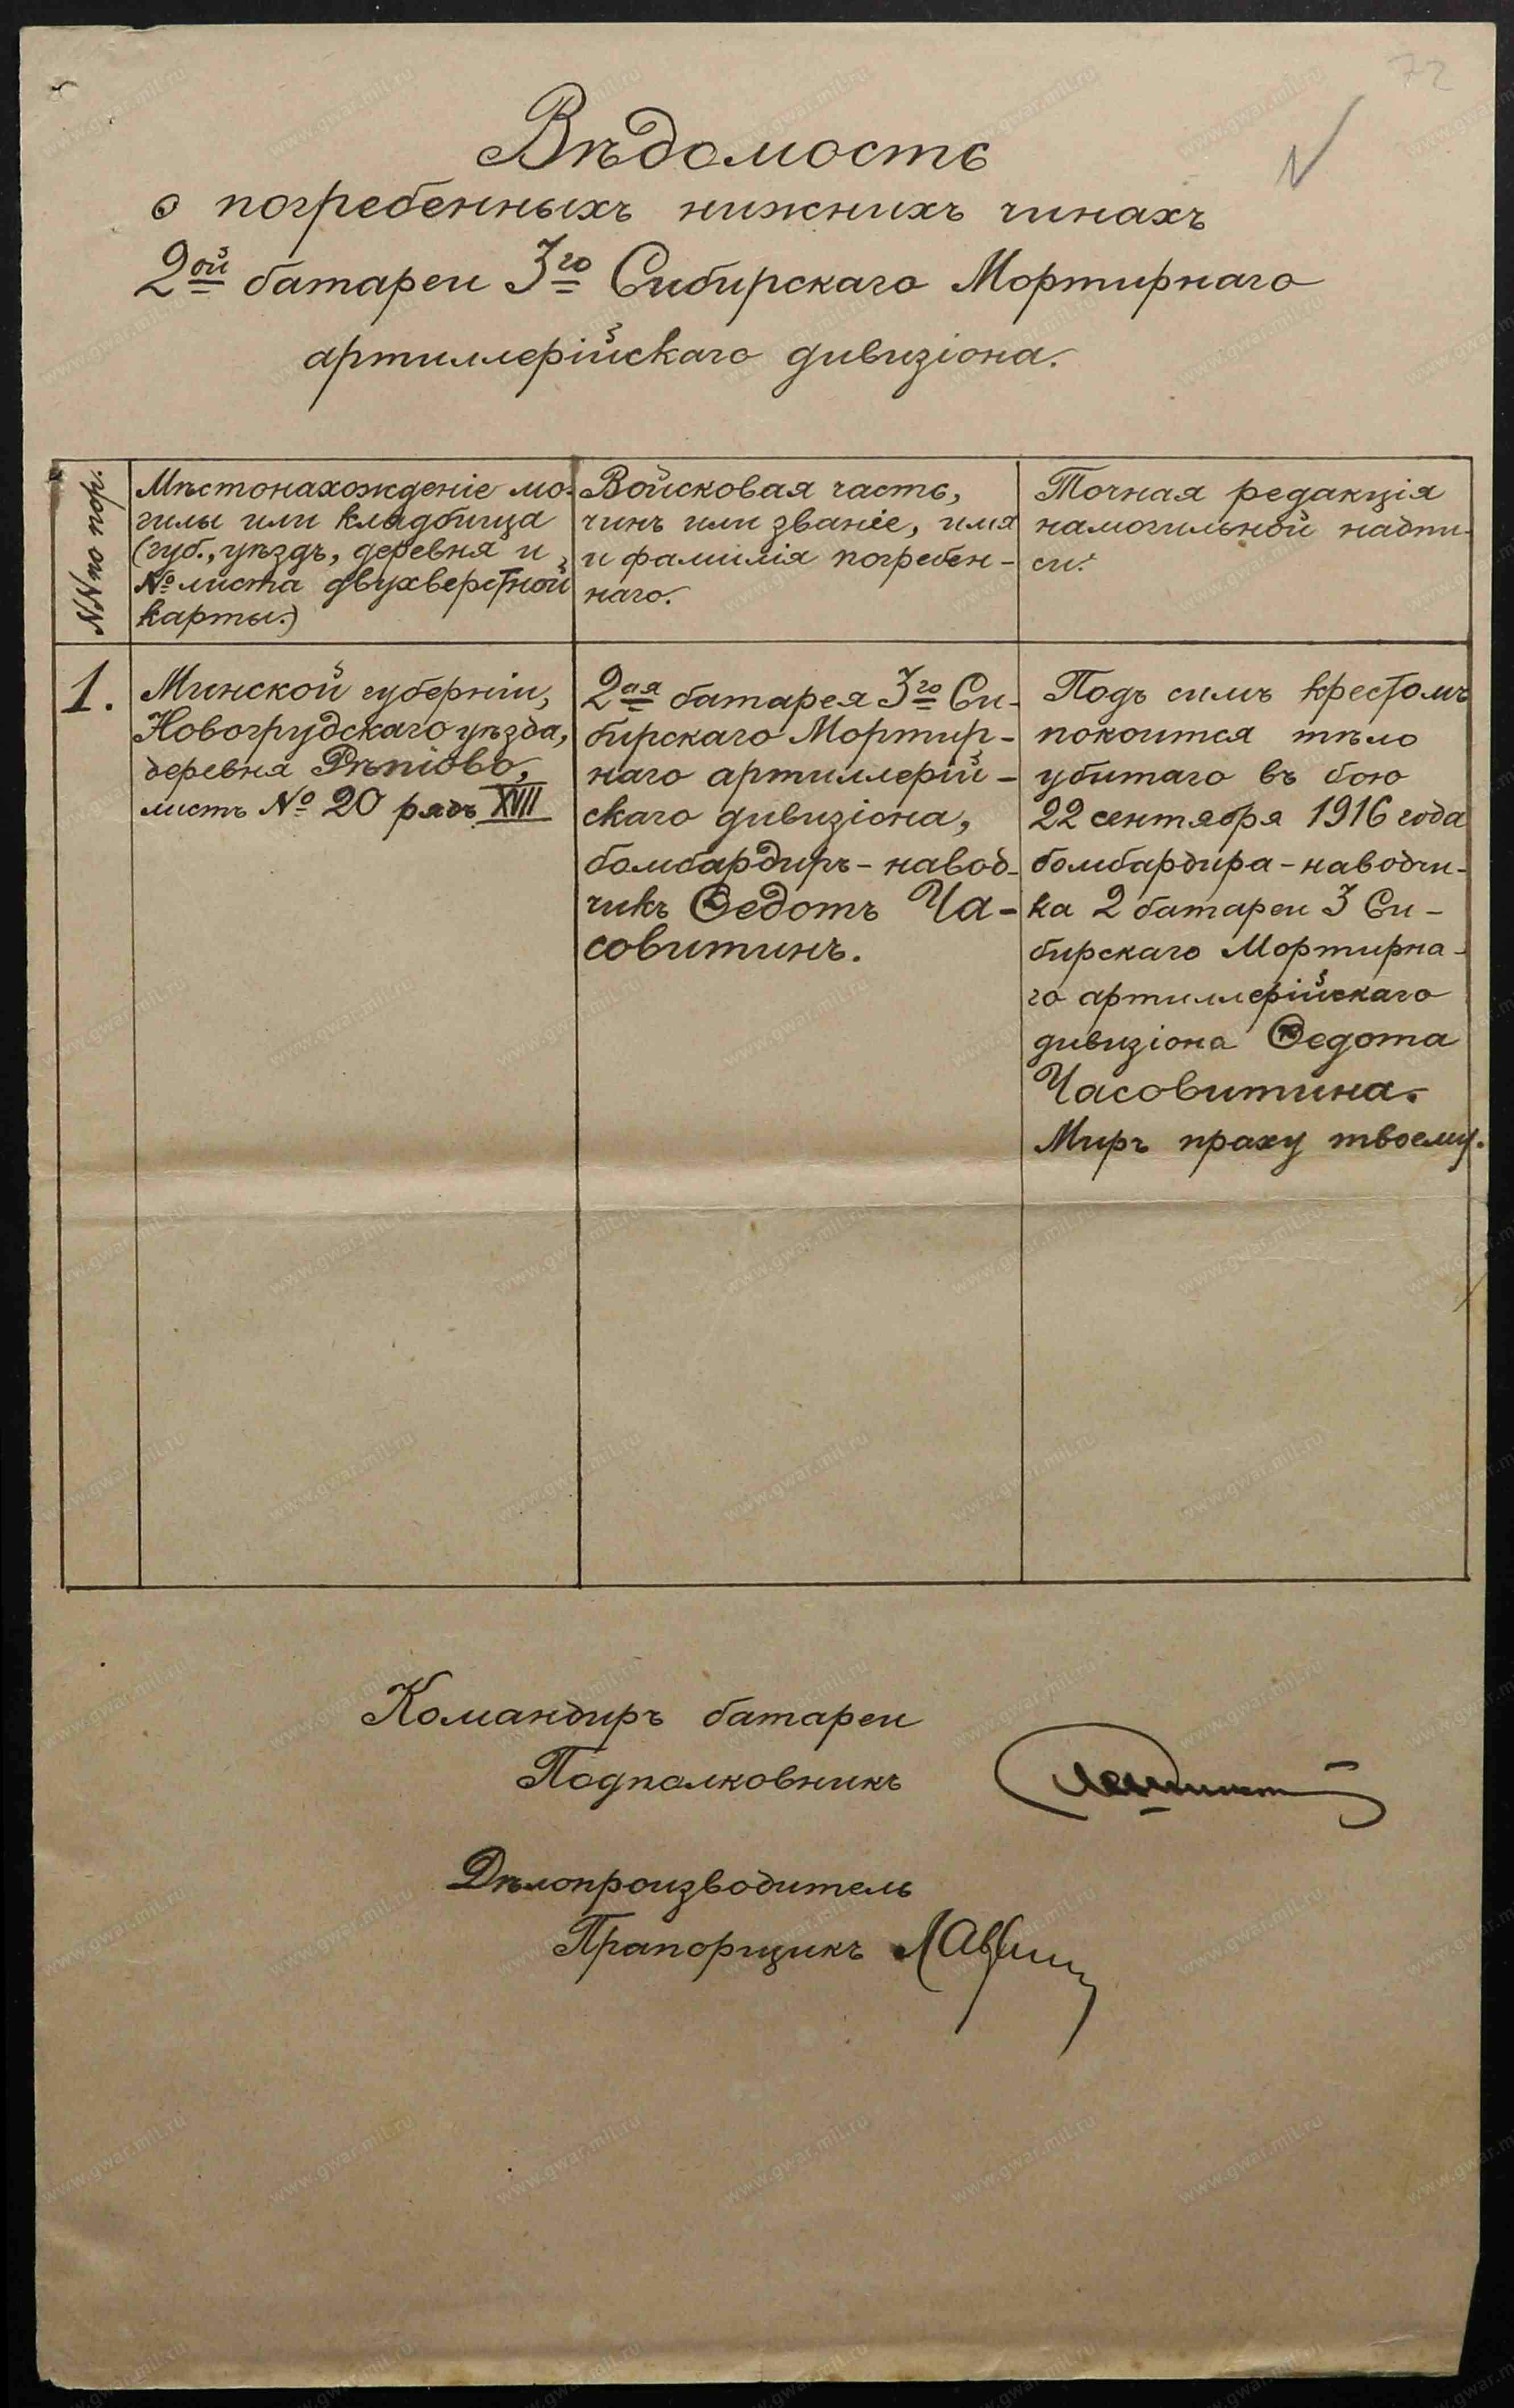 72
Вѣдомость
о погребенныхъ нижнихъ чинахъ
2ой батареи 3го Сибирскаго Мортирнаго
артиллерійскаго дивизіона.
№№ по пор.
Мѣстонахожденіе мо-
гилы или кладбища
(губ., уѣздъ, деревня и
№ листа двухверстной
карты.)
Войсковая часть,
чинъ или званіе, имя
и фамилія погребен-
наго.
Точная редакція
намогильной надпи-
си.
1.
Минской губерніи,
Новогрудскаго уѣзда,
деревня Рѣпіово,
листъ № 20 рядъ XVII
2ая батарея 3го Си-
бирскаго Мортир-
наго артиллерій-
скаго дивизіона,
бомбардиръ-навод-
чикъ Ѳедотъ Ча-
совитинъ.
Подъ симъ крестомъ
покоится тѣло
убитаго въ бою
22 сентября 1916 года
бомбардира-наводчи-
ка 2 батареи 3 Си-
бирскаго Мортирна-
го артиллерійскаго
дивизіона Ѳедота
Часовитина.
Миръ праху твоему.
Командиръ батареи
Подполковникъ
Дѣлопроизводитель
Прапорщикъ